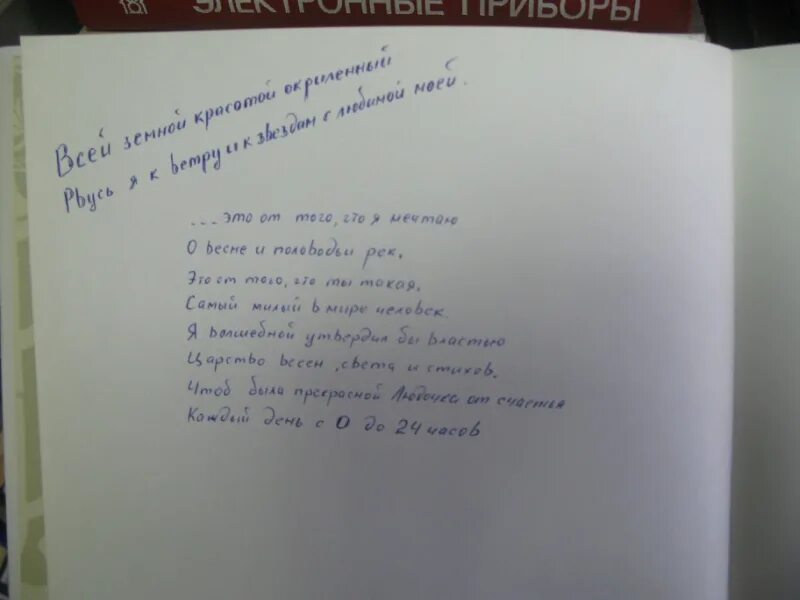 ЭЛЕКТРОННЫЕ ПРИБОРЫ
Всей земной красотой окриленный
Рвусь я к ветру и к звездам с любимой моей.
... это от того, что я мечтаю
О весне и половодьи рек.
Это от того, что ты такая.
Самый милый в мире человек.
Я волшебной утвердил бы властью
Царство весен, света и стихов.
Чтоб была прекрасной Людочка от счастья
Каждый день с 0 до 24 часов